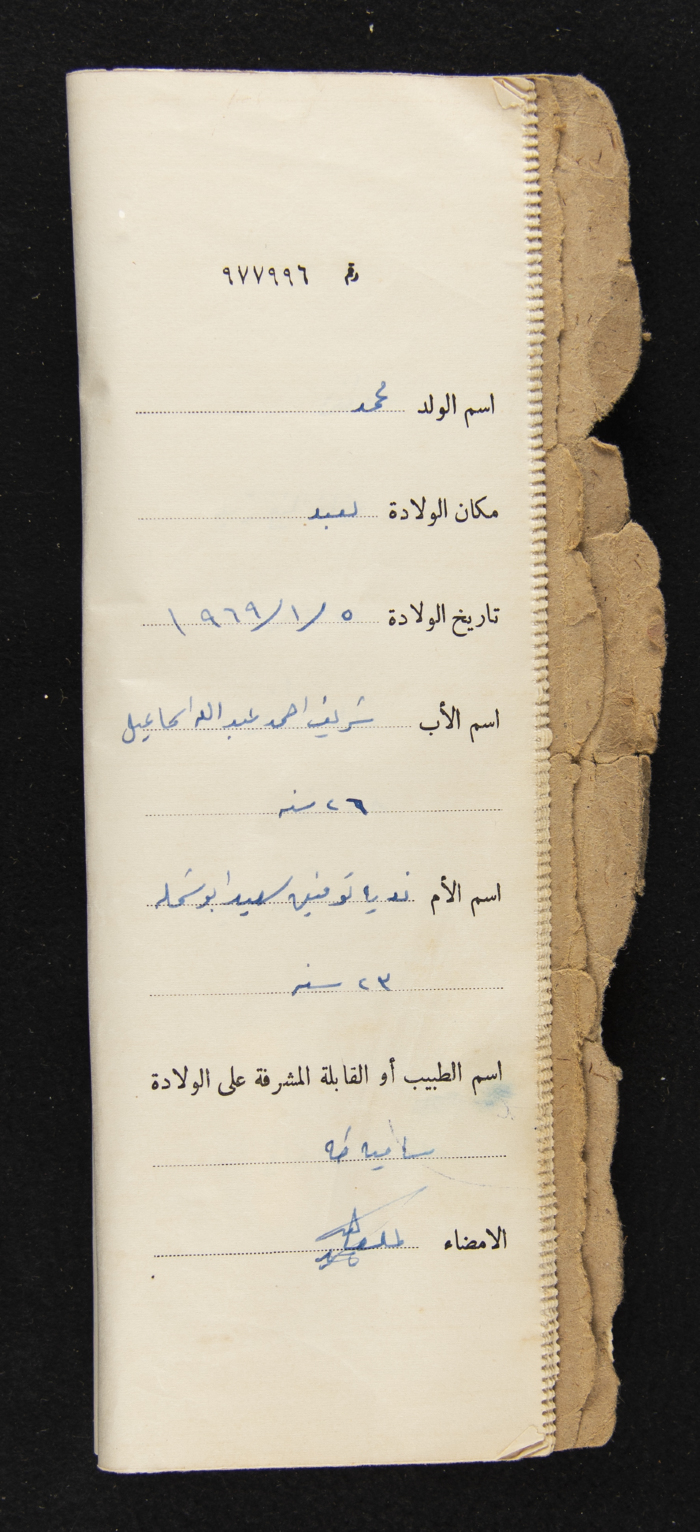 رقم ٩٧٧٩٩٦
اسم الولد محمد
مكان الولادة يعبد
تاريخ الولادة ٥ / ١ / ١٩٦٩
اسم الأب شريف احمد عبد الله اسماعيل
٢٦ سنه
اسم الأم ناديا توفيق سعيد ابو شمله
٢٣ سنه
اسم الطبيب أو القابلة المشرفة على الولادة
ساميه طه
الامضاء